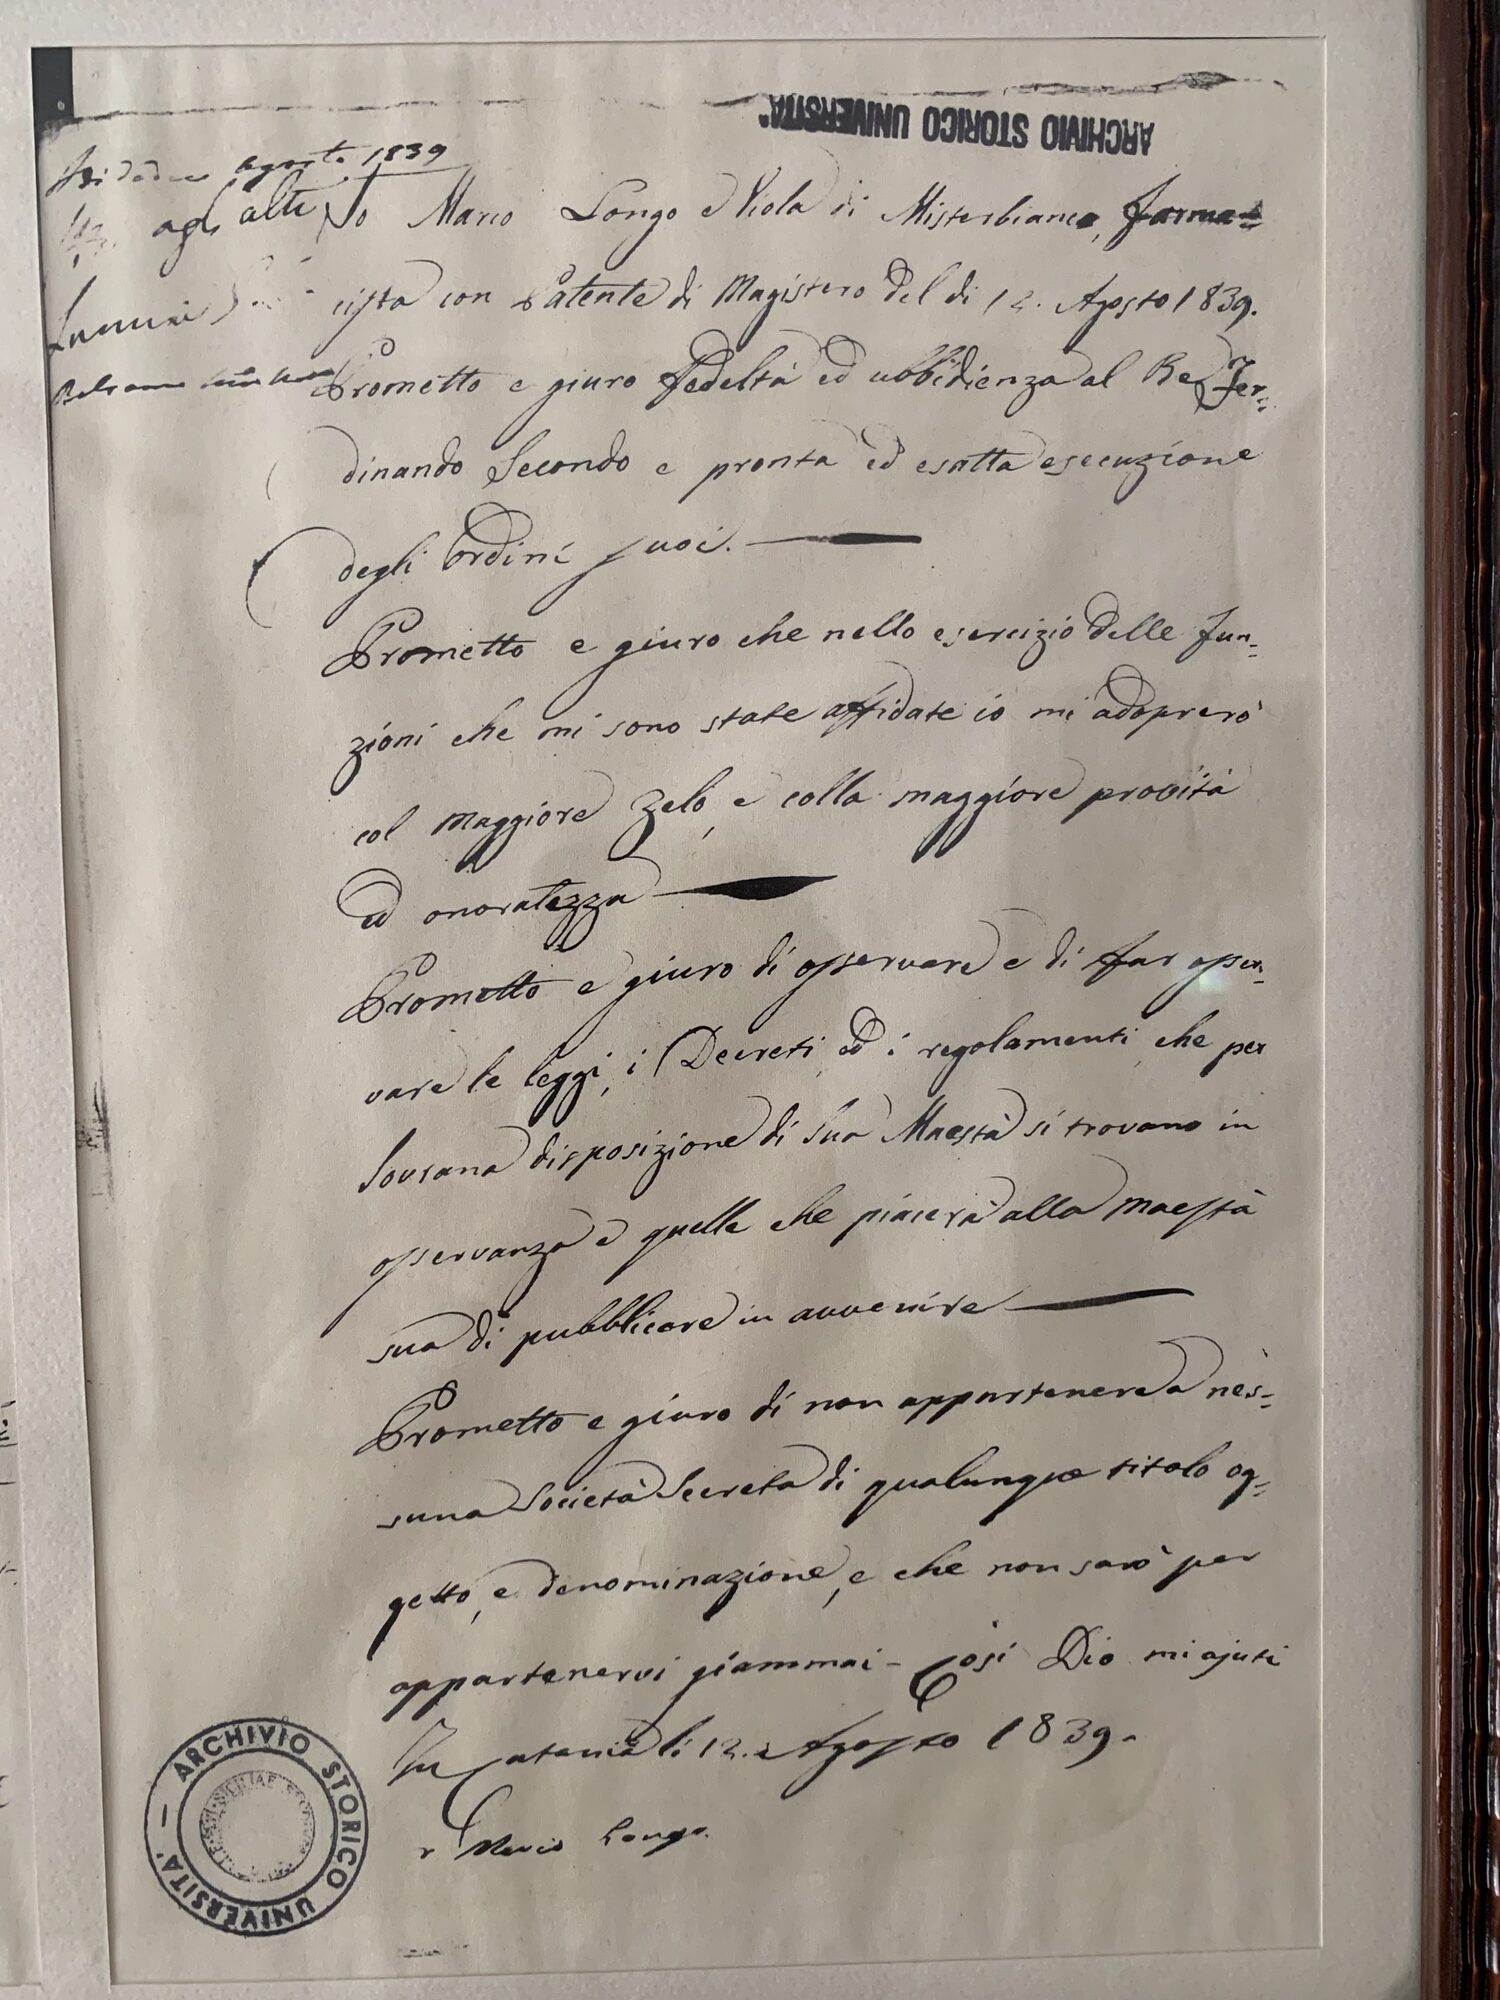 ARCHIVIO STORICO UNIVERSITA'
Agosto 1839
agli atti
Io Mario Longo e Viola di Misterbianco, farma=
cista con Patente di Magistero del di 12. Agosto 1839.
Prometto e giuro fedeltà ed ubbidienza al Re Fer=
dinando Secondo e pronta ed esatta esecuzione
degli ordini suoi.
Prometto e giuro che nello esercizio delle fun=
zioni che mi sono state affidate io mi adoprerò
col maggiore zelo, e colla maggiore provità
ed onoratezza
Prometto e giuro di osservare e di far osser=
vare le leggi, i Decreti, ed i regolamenti, che per
Sovrana disposizione di Sua Maestà si trovano in
osservanza e quelle che piacerà alla Maestà
sua di pubblicare in avvenire
Prometto e giuro di non appartenere a nes=
suna Società Secreta di qualunque titolo og=
getto, e denominazione, e che non sarò per
appartenervi giammai - Così Dio mi ajuti
In Catania li 12. Agosto 1839.
Mario Longo
ARCHIVIO STORICO UNIVERSITA'